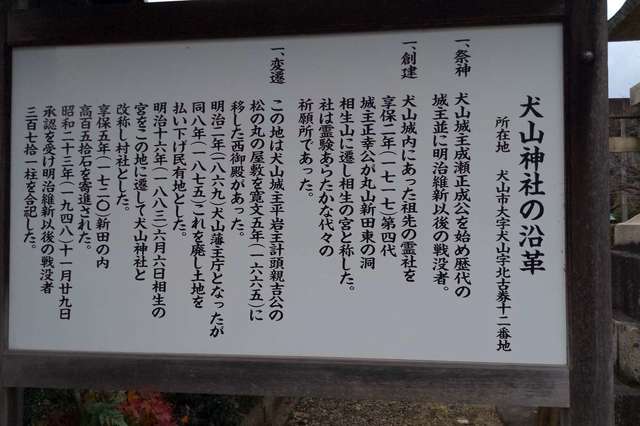 犬山神社の沿革
所在地　犬山市大字犬山字北古券十二番地
一、祭神　犬山城主成瀬正成公を始め歴代の
城主並に明治維新以後の戦没者。
一、創建　犬山城内にあった祖先の霊社を
享保二年(一七一七)第四代
城主正幸公が丸山新田東の洞
相生山に遷し相生の宮と称した。
社は霊験あらたかな代々の
祈願所であった。
一、変遷　この地は犬山城主平岩主計頭親吉公の
松の丸の屋敷を寛文五年(一六六五)に
移した西御殿があった。
明治二年(一八六九)犬山藩主庁となったが
同八年(一八七五)これを廃し土地を
払い下げ民有地とした。
明治十六年(一八八三)六月六日相生の
宮をこの地に遷して犬山神社と
改称し村社とした。
享保五年(一七二〇)新田の内
高百五拾石を寄進された。
昭和二十三年(一九四八)十一月廿九日
承認を受け明治維新以後の戦没者
三百七拾一柱を合祀した。